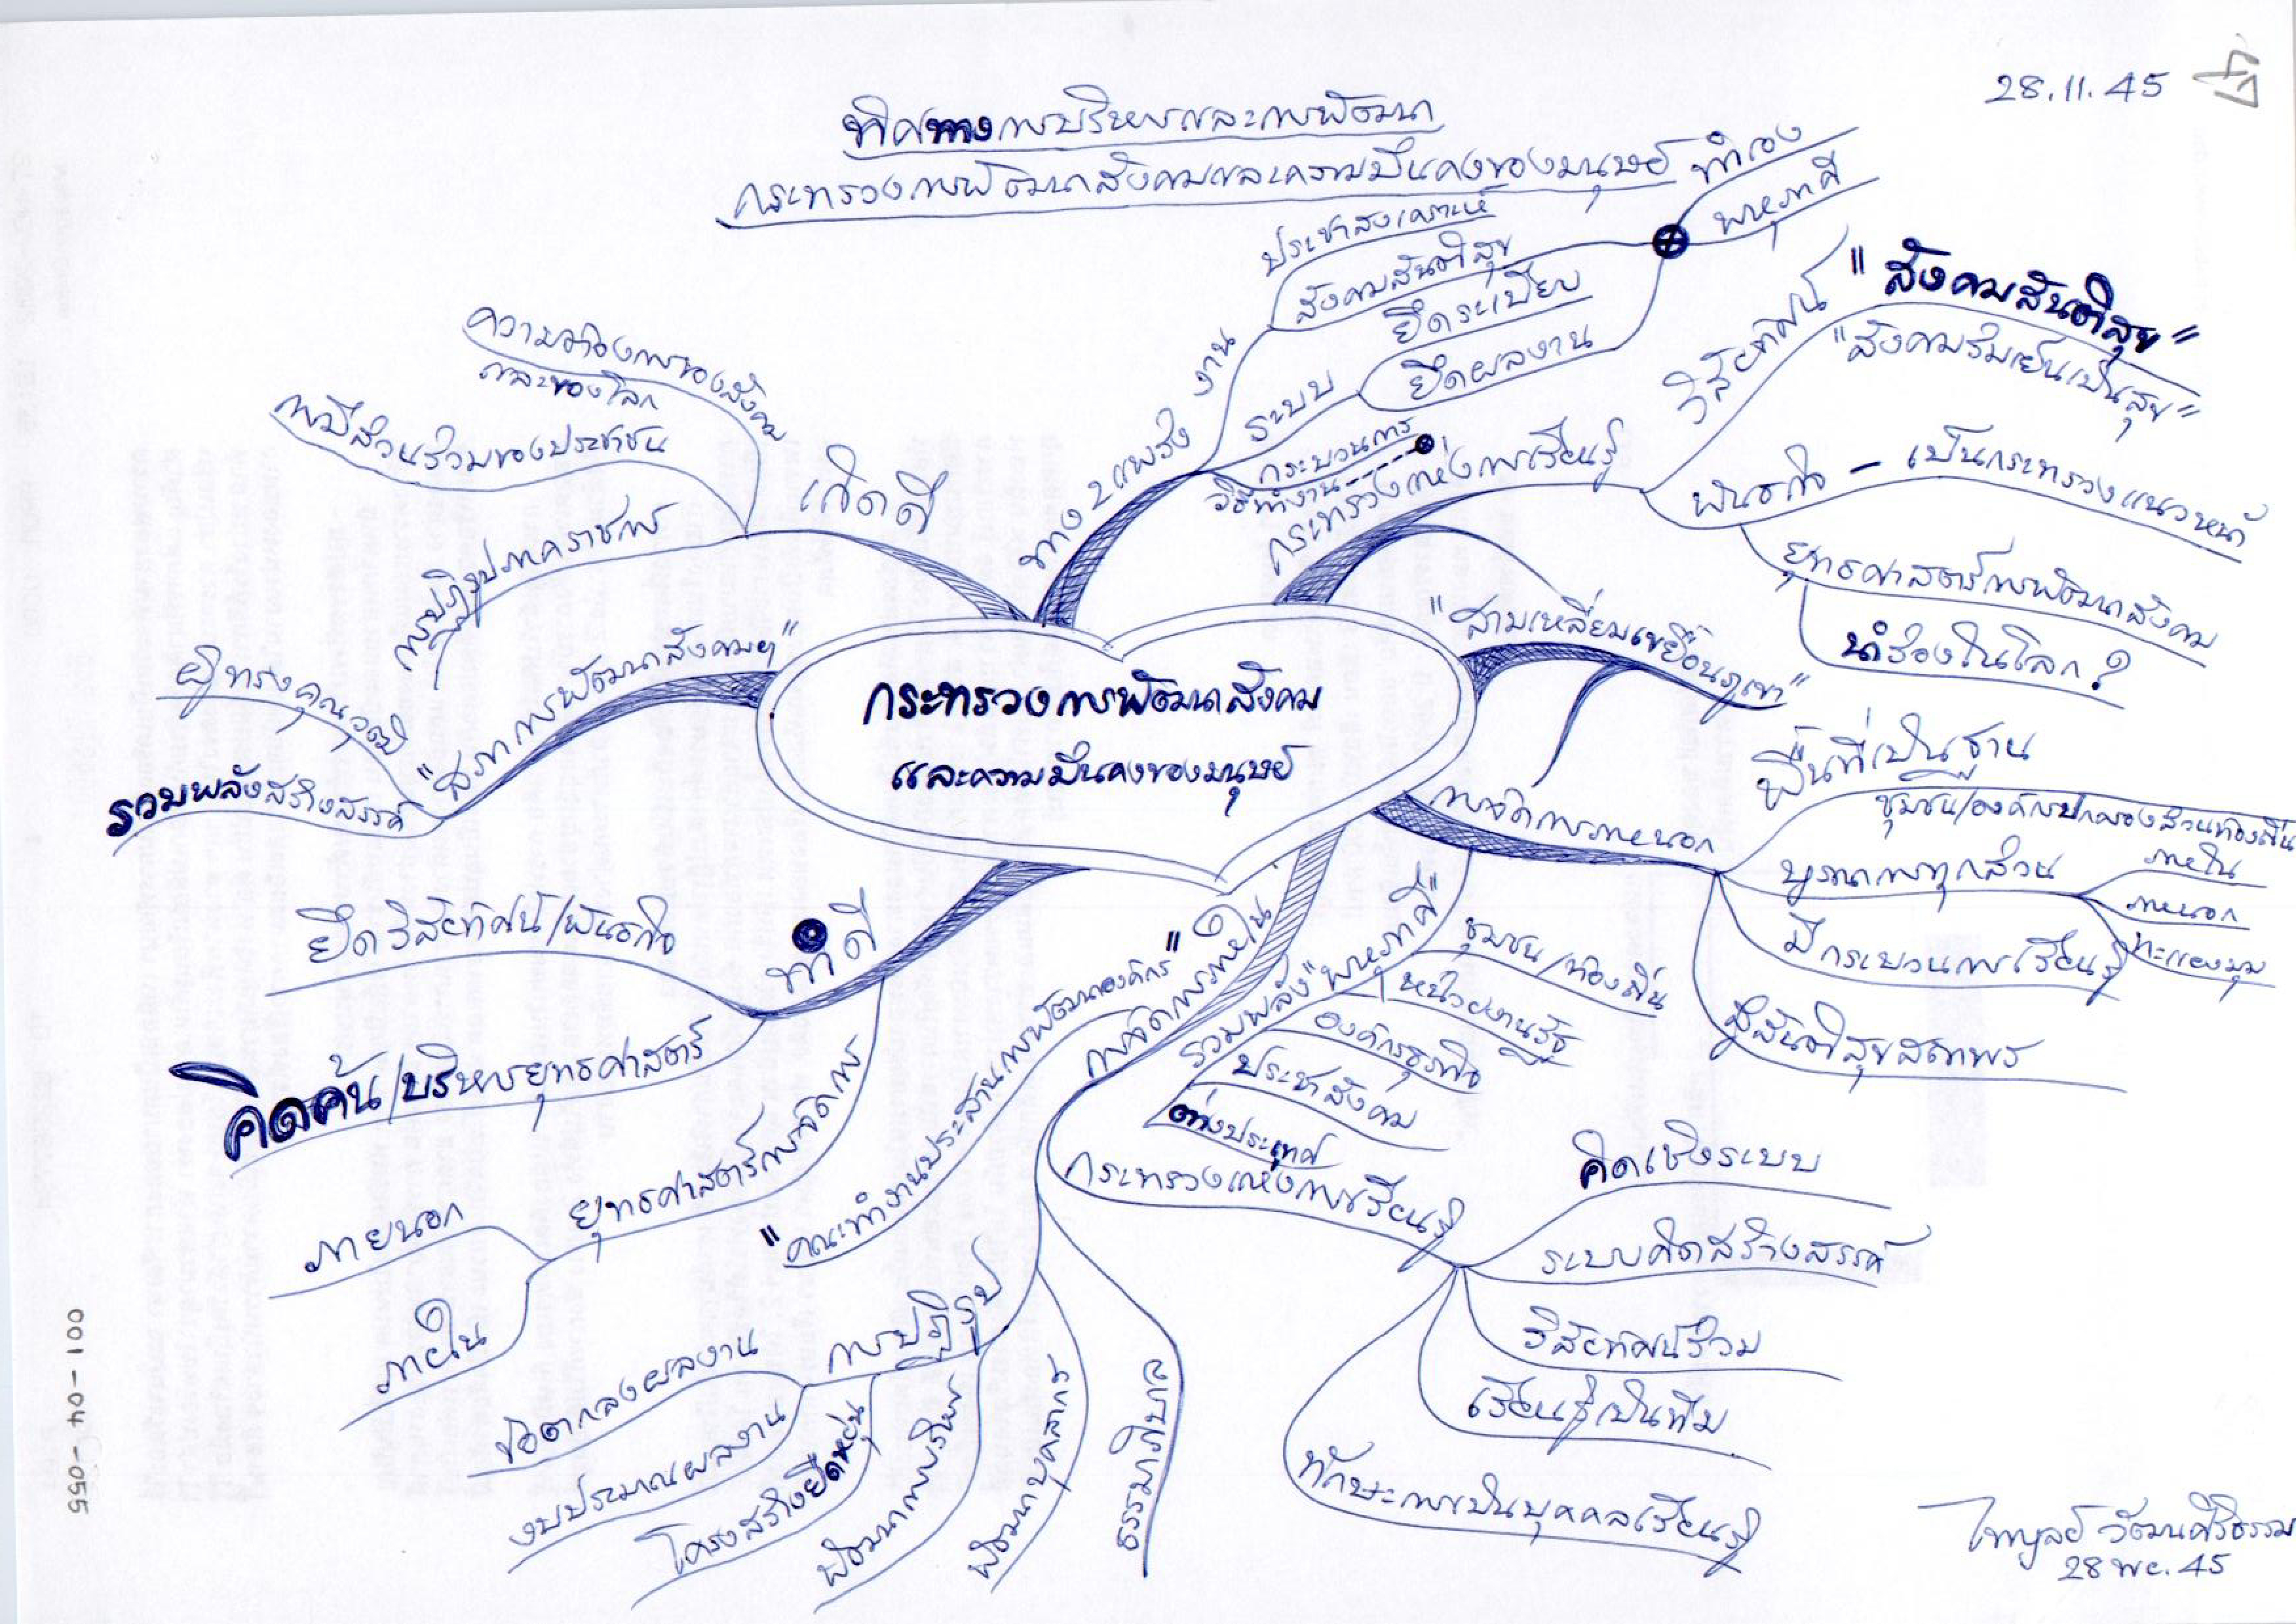 28.11.45
ทิศทางการบริหารและการพัฒนา
กระทรวงการพัฒนาสังคมและความมั่นคงของมนุษย์
กระทรวงการพัฒนาสังคม
และความมั่นคงของมนุษย์
ทาง 2 แพร่ง
งาน
ประชาสงเคราะห์
สังคมสันติสุข
ระบบ
ยึดระเบียบ
ยึดผลงาน
ทำเอง
พหุภาคี
กระบวนการ
วิธีทำงาน
กระทรวงแห่งการเรียนรู้
วิสัยทัศน์
"สังคมสันติสุข"
"สังคมร่มเย็นเป็นสุข"
พันธกิจ – เป็นกระทรวงแนวหน้า
ยุทธศาสตร์การพัฒนาสังคม
นำร่องในโลก?
"สามเหลี่ยมเขยื้อนภูเขา"
การจัดการภายนอก
พื้นที่เป็นฐาน
ชุมชน/องค์กรปกครองส่วนท้องถิ่น
บูรณาการทุกส่วน
ภายใน
ภายนอก
ทะแยงมุม
มีกระบวนการเรียนรู้
สู่สันติสุขสถาพร
รวมพลัง "พหุภาคี"
ชุมชน/ท้องถิ่น
หน่วยงานรัฐ
องค์กรธุรกิจ
ประชาสังคม
ต่างประเทศ
การจัดการภายใน
"คณะทำงานประสานการพัฒนาองค์กร"
กระทรวงแห่งการเรียนรู้
คิดเชิงระบบ
ระบบคิดสร้างสรรค์
วิสัยทัศน์ร่วม
เรียนรู้เป็นทีม
ทักษะการเป็นบุคคลเรียนรู้
ธรรมาภิบาล
พัฒนาบุคลากร
พัฒนาการบริหาร
การปฏิรูป
ข้อตกลงผลงาน
งบประมาณผลงาน
โครงสร้างยืดหยุ่น
ทำดี
ยึดวิสัยทัศน์/พันธกิจ
คิดค้น/บริหารยุทธศาสตร์
ยุทธศาสตร์การจัดการ
ภายนอก
ภายใน
"สภาการพัฒนาสังคมฯ"
ผู้ทรงคุณวุฒิ
รวมพลังสร้างสรรค์
เกิดดี
ความต้องการของสังคม
และของโลก
การมีส่วนร่วมของประชาชน
การปฏิรูปภาคราชการ
ไพบูลย์ วัฒนศิริธรรม
28 พย. 45
001-04-055